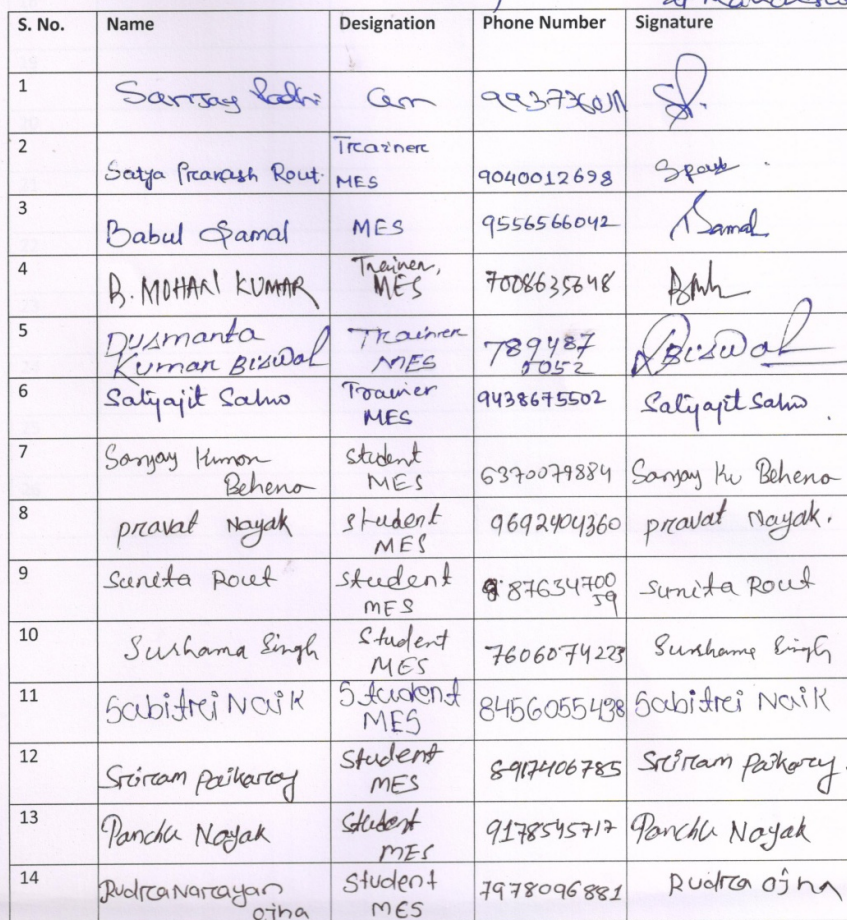 S. No. Name Designation Phone Number Signature
1 Sanjay Padhi
2 Satya Prakash Rout Trainer MES 9040012698
3 Babul Samal MES 9556566042 Samal
4 B. MOHAN KUMAR Trainer, MES 7008635648
5 Dusmanta Kumar Biswal Trainer MES 789487 Biswal
6 Satyajit Sahoo Trainer MES 9438675502 Satyajit Sahoo
7 Sanjay Kumar Behera Student MES 6370079884 Sanjay Ku Behera
8 pravat Nayak Student MES 9692404360 pravat Nayak.
9 Sunita Rout Student MES 8763470059 Sunita Rout
10 Sushama Singh Student MES 7606074223 Sushama Singh
11 Sabitri Naik Student MES 8456055438 Sabitri Naik
12 Sriram Paikaray Student MES 8917406785 Sriram Paikaray
13 Panchu Nayak Student MES 9178545717 Panchu Nayak
14 Rudranarayan ojha Student MES 7978096881 Rudra ojha